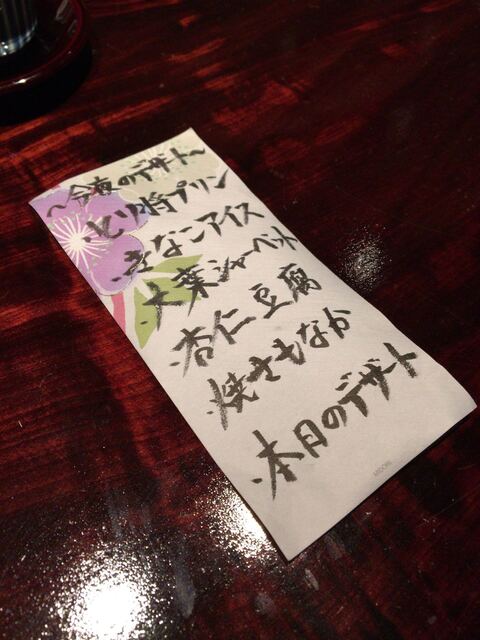 〜今夜のデザート〜
・とり将プリン
・きなこアイス
・大葉シャーベット
・杏仁豆腐
・焼きもなか
・本日のデザート
MIDORI